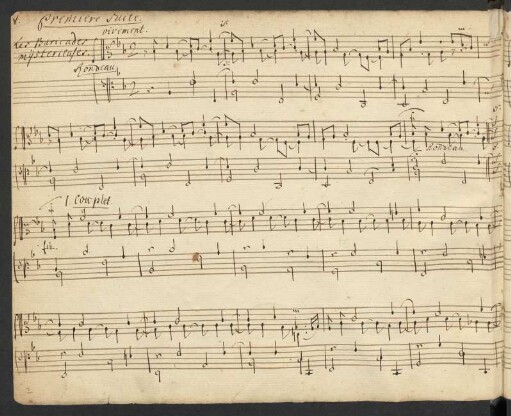 Premiere Suite.
vivement.
Les Baricades
mÿsterieuses
Rondeau
Rondeau
1 Couplet
fin.